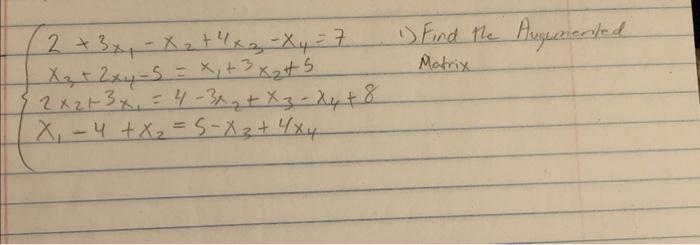 2 + 3x₁ - x₂ + 4x₃ - x₄ = 7
x₃ + 2x₄ - 5 = x₁ + 3x₂ + 5
2x₂ + 3x₁ = 4 - 3x₂ + x₃ - x₄ + 8
x₁ - 4 + x₂ = 5 - x₃ + 4x₄
1) Find the Augumented
Matrix